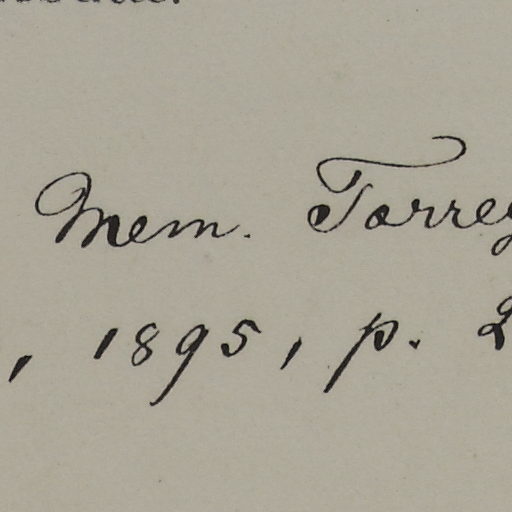 Mem. Torrey
, 1895, p. 2